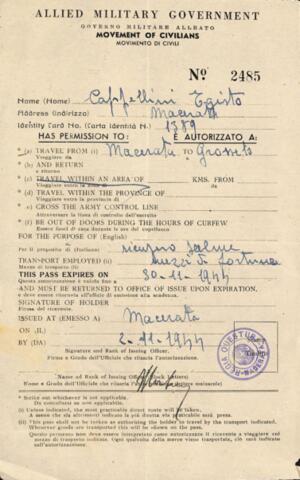 ALLIED MILITARY GOVERNMENT
GOVERNO MILITARE ALLEATO
MOVEMENT OF CIVILIANS
MOVIMENTO DI CIVILI
Nº 2485
Name (Nome) Cappellini Egisto
Address (Indirizzo) Macerata
Identity Card No. (Carta Identità N.) 1389
HAS PERMISSION TO : È AUTORIZZATO A:
* (a) TRAVEL FROM (i) Macerata TO Grosseto
Viaggiare da a
* (b) AND RETURN
e ritorno
* (c) TRAVEL WITHIN AN AREA OF KMS. FROM
Viaggiare entro la zona di da
* (d) TRAVEL WITHIN THE PROVINCE OF
Viaggiare entro la provincia di
* (e) CROSS THE ARMY CONTROL LINE
Attraversare la linea di controllo dell'esercito
* (f) BE OUT OF DOORS DURING THE HOURS OF CURFEW
Essere fuori di casa durante le ore del coprifuoco
FOR THE PURPOSE OF (English)
Per il proposito di (Italiano) salme
TRANSPORT EMPLOYED (ii) mezzi di fortuna
Mezzo di trasporto (ii)
THIS PASS EXPIRES ON 30-11-1944
Questa autorizzazione è valida fino a
AND MUST BE RETURNED TO OFFICE OF ISSUE UPON EXPIRATION.
e deve essere ritornata all'ufficio di emissione alla scadenza.
SIGNATURE OF HOLDER
Firma del ricevente.
ISSUED AT (EMESSO A) Macerata
ON (IL)
BY (DA) 2-11-1944
Signature and Rank of Issuing Officer.
Firma e Grado dell'Ufficiale che rilascia l'autorizzazione.
Name and Rank of Issuing Officer (Block Letters)
Nome e Grado dell'Ufficiale che rilascia
* Strike out whichever is not applicable.
Da cancellarsi se non applicabile.
(i) Unless indicated, the most practicable direct route will be taken.
A meno che sia altrimenti indicato la più diretta via praticabile sarà presa.
(ii) This pass shall not be taken as authorising the holder to travel by the transport indicated.
Whenever goods are transported this will be shown on the pass.
Questo permesso non deve essere interpretato come autorizzazione il ricevente a viaggiare col
mezzo di trasporto indicato. Ogni qualvolta della merce viene trasportata, ciò sarà indicato
sull'autorizzazione.